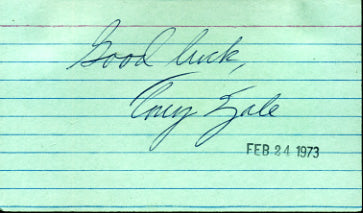 Good luck,
Tony Zale
FEB 24 1973